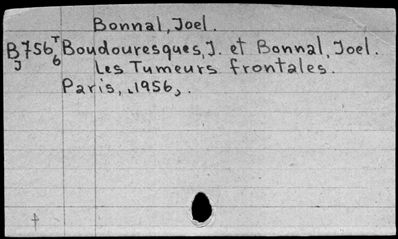 Bonnal, Joel.
B756 T Boudouresques, J. et Bonnal, Joel.
J 6 Les Tumeurs frontales.
Paris, 1956,.